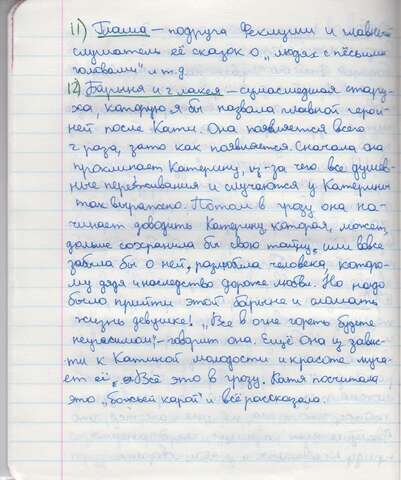 11) Глаша – подруга Феклуши и главный
слушатель её сказок о „людях с пёсьими
головами" и т.д.
12) Барыня и 2 лакея – сумасшедшая стару-
ха, которую я бы назвала главной герои-
ней после Кати. Она появляется всего
2 раза, зато как появляется. Сначала она
проклинает Катерину, из-за чего все душев-
ные переживания и случаются у Катерины
так выражено. Потом в грозу она на-
чинает доводить Катерину, которая, может,
дальше сохранила бы свою тайну, или вовсе
забыла бы о ней, разлюбила человека, которо-
му дядя и наследство дороже любви. Но надо
было прийти этой барыне и сломать
жизнь девушке! „Все в огне гореть будете
неугасимом" – говорит она. Ещё она из завис-
ти к Катиной молодости и красоте муча-
ет её. Всё это в грозу. Катя посчитала
это „божьей карой" и всё рассказала.